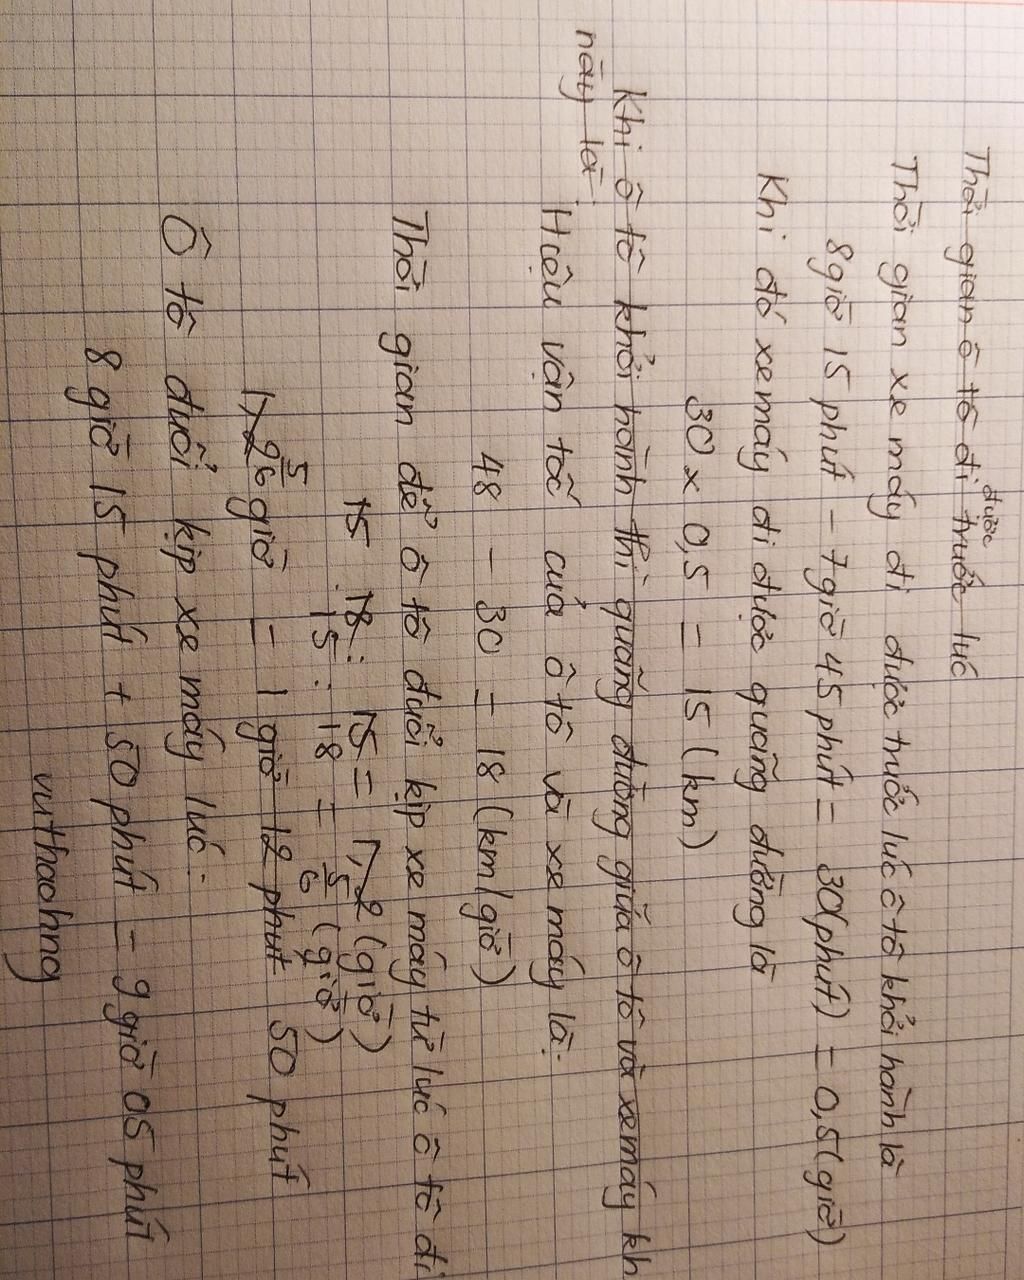 Thời gian ô tô đi trước lúc
được
Thời gian xe máy đi được trước lúc ô tô khởi hành là
8giờ 15 phút - 7giờ 45 phút = 30(phút) = 0,5(giờ)
Khi đó xe máy đi được quãng đường là
30 x 0,5 = 15 (km)
Khi ô tô khởi hành thì quãng đường giữa ô tô và xe máy kh
này là:
Hiệu vận tốc của ô tô và xe máy là:
48 - 30 = 18 (km/giờ)
Thời gian để ô tô đuổi kịp xe máy từ lúc ô tô đi
15 18 : 15 = 1,2 (giờ)
15 : 18 = 5/6 (giờ)
1,2 5/6 giờ = 1 giờ 12 phút 50 phút
Ô tô đuổi kịp xe máy lúc:
8 giờ 15 phút + 50 phút = 9 giờ 05 phút
vuthaohng